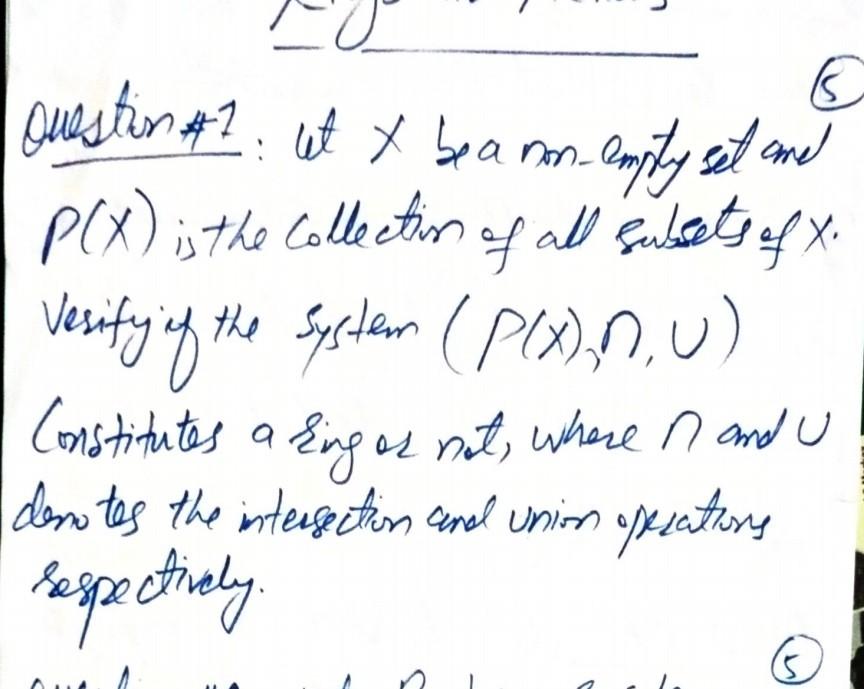 5
Question #1: let X be a non-empty set and
P(X) is the collection of all subsets of X.
Verify if the system (P(X), ∩, ∪)
Constitutes a ring or not, where ∩ and ∪
denotes the intersection and union operations
respectively.
5